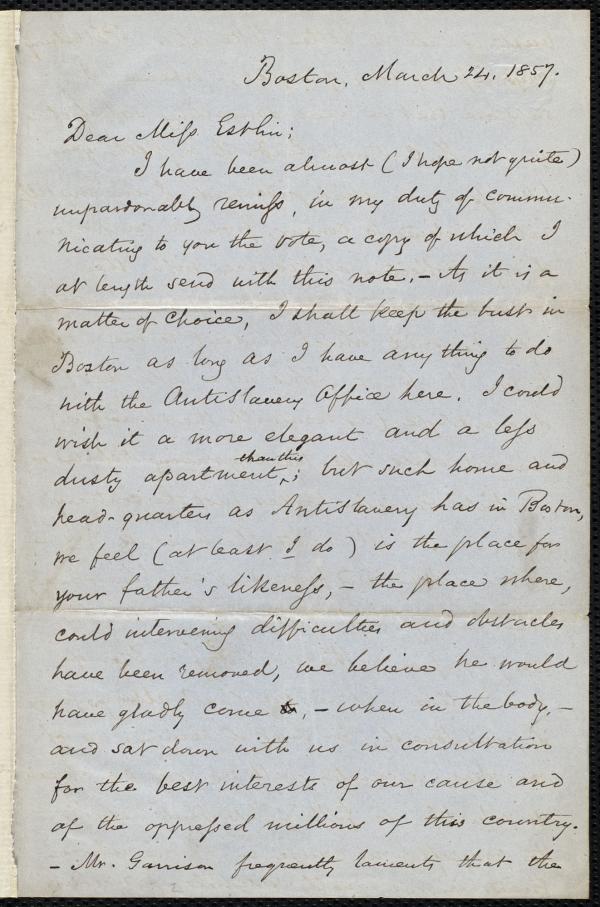 Boston, March 24. 1857.
Dear Miss Estlin;
I have been almost (I hope not quite)
unpardonably remiss, in my duty of commu-
nicating to you the vote, a copy of which I
at length send with this note. – As it is a
matter of choice, I shall keep the bust in
Boston as long as I have any thing to do
with the Antislavery Office here. I could
wish it a more elegant and a less
dusty apartment than this; but such home and
head-quarters as Antislavery has in Boston,
we feel (at least I do) is the place for
your father's likeness, – the place where,
could intervening difficulties and obstacles
have been removed, we believe he would
have gladly come, – when in the body, –
and sat down with us in consultation
for the best interests of our cause and
of the oppressed millions of this country.
– Mr. Garrison frequently laments that the